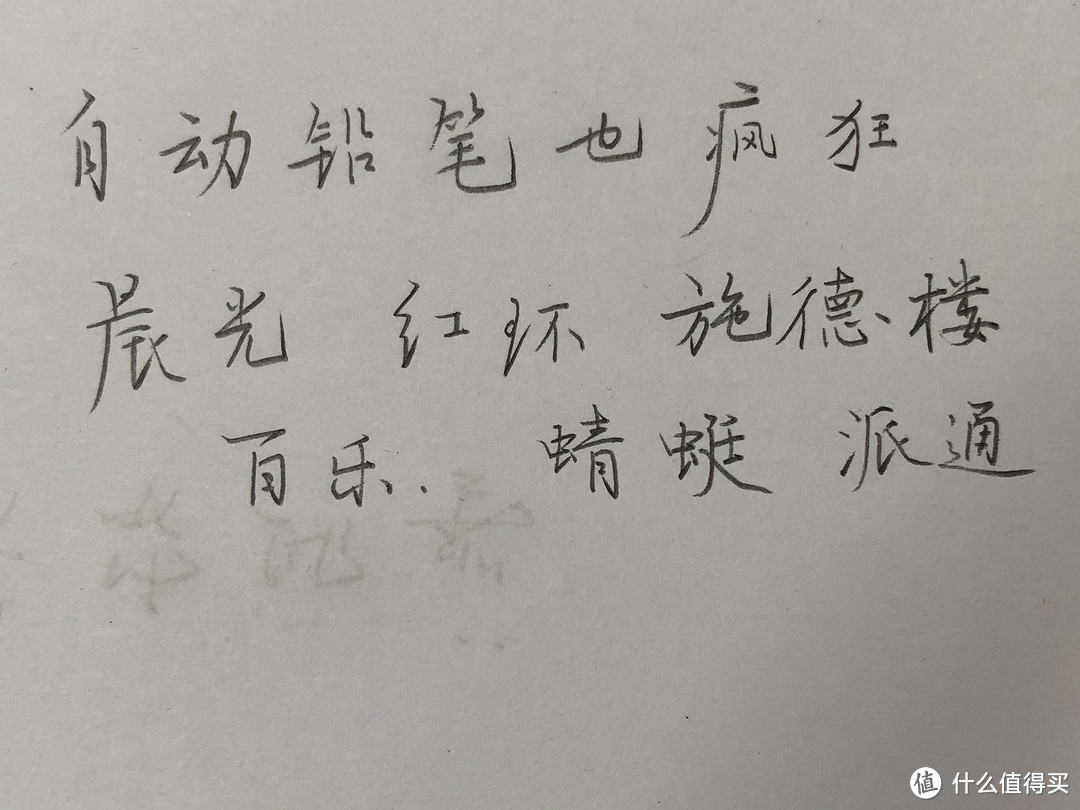 自动铅笔也疯狂
晨光 红环 施德楼
百乐. 蜻蜓 派通
值 什么值得买